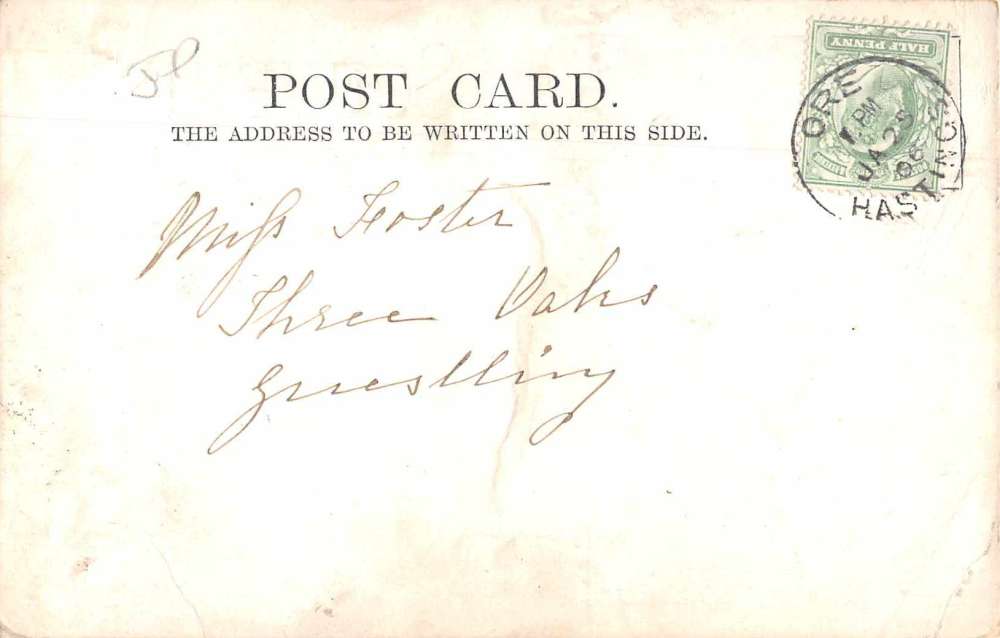 POST CARD.
THE ADDRESS TO BE WRITTEN ON THIS SIDE.
HALF PENNY
ORE
1 PM
JA 25
06
HASTINGS
Miss Foster
Three Oaks
Guestling